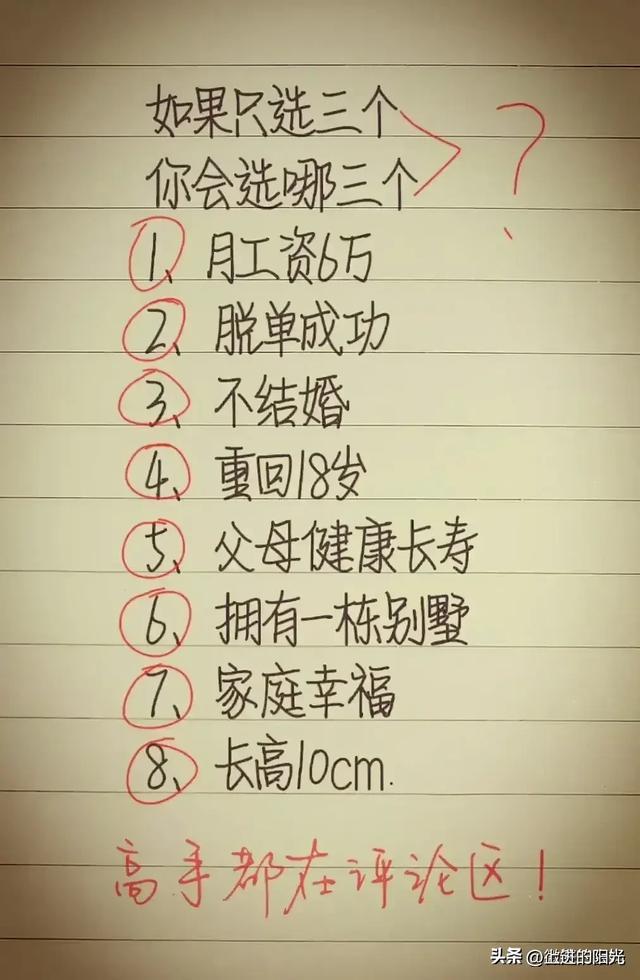 如果只选三个
你会选哪三个?
1、月工资6万
2、脱单成功
3、不结婚
4、重回18岁
5、父母健康长寿
6、拥有一栋别墅
7、家庭幸福
8、长高10cm.
高手都在评论区!
头条 @上进的阳光